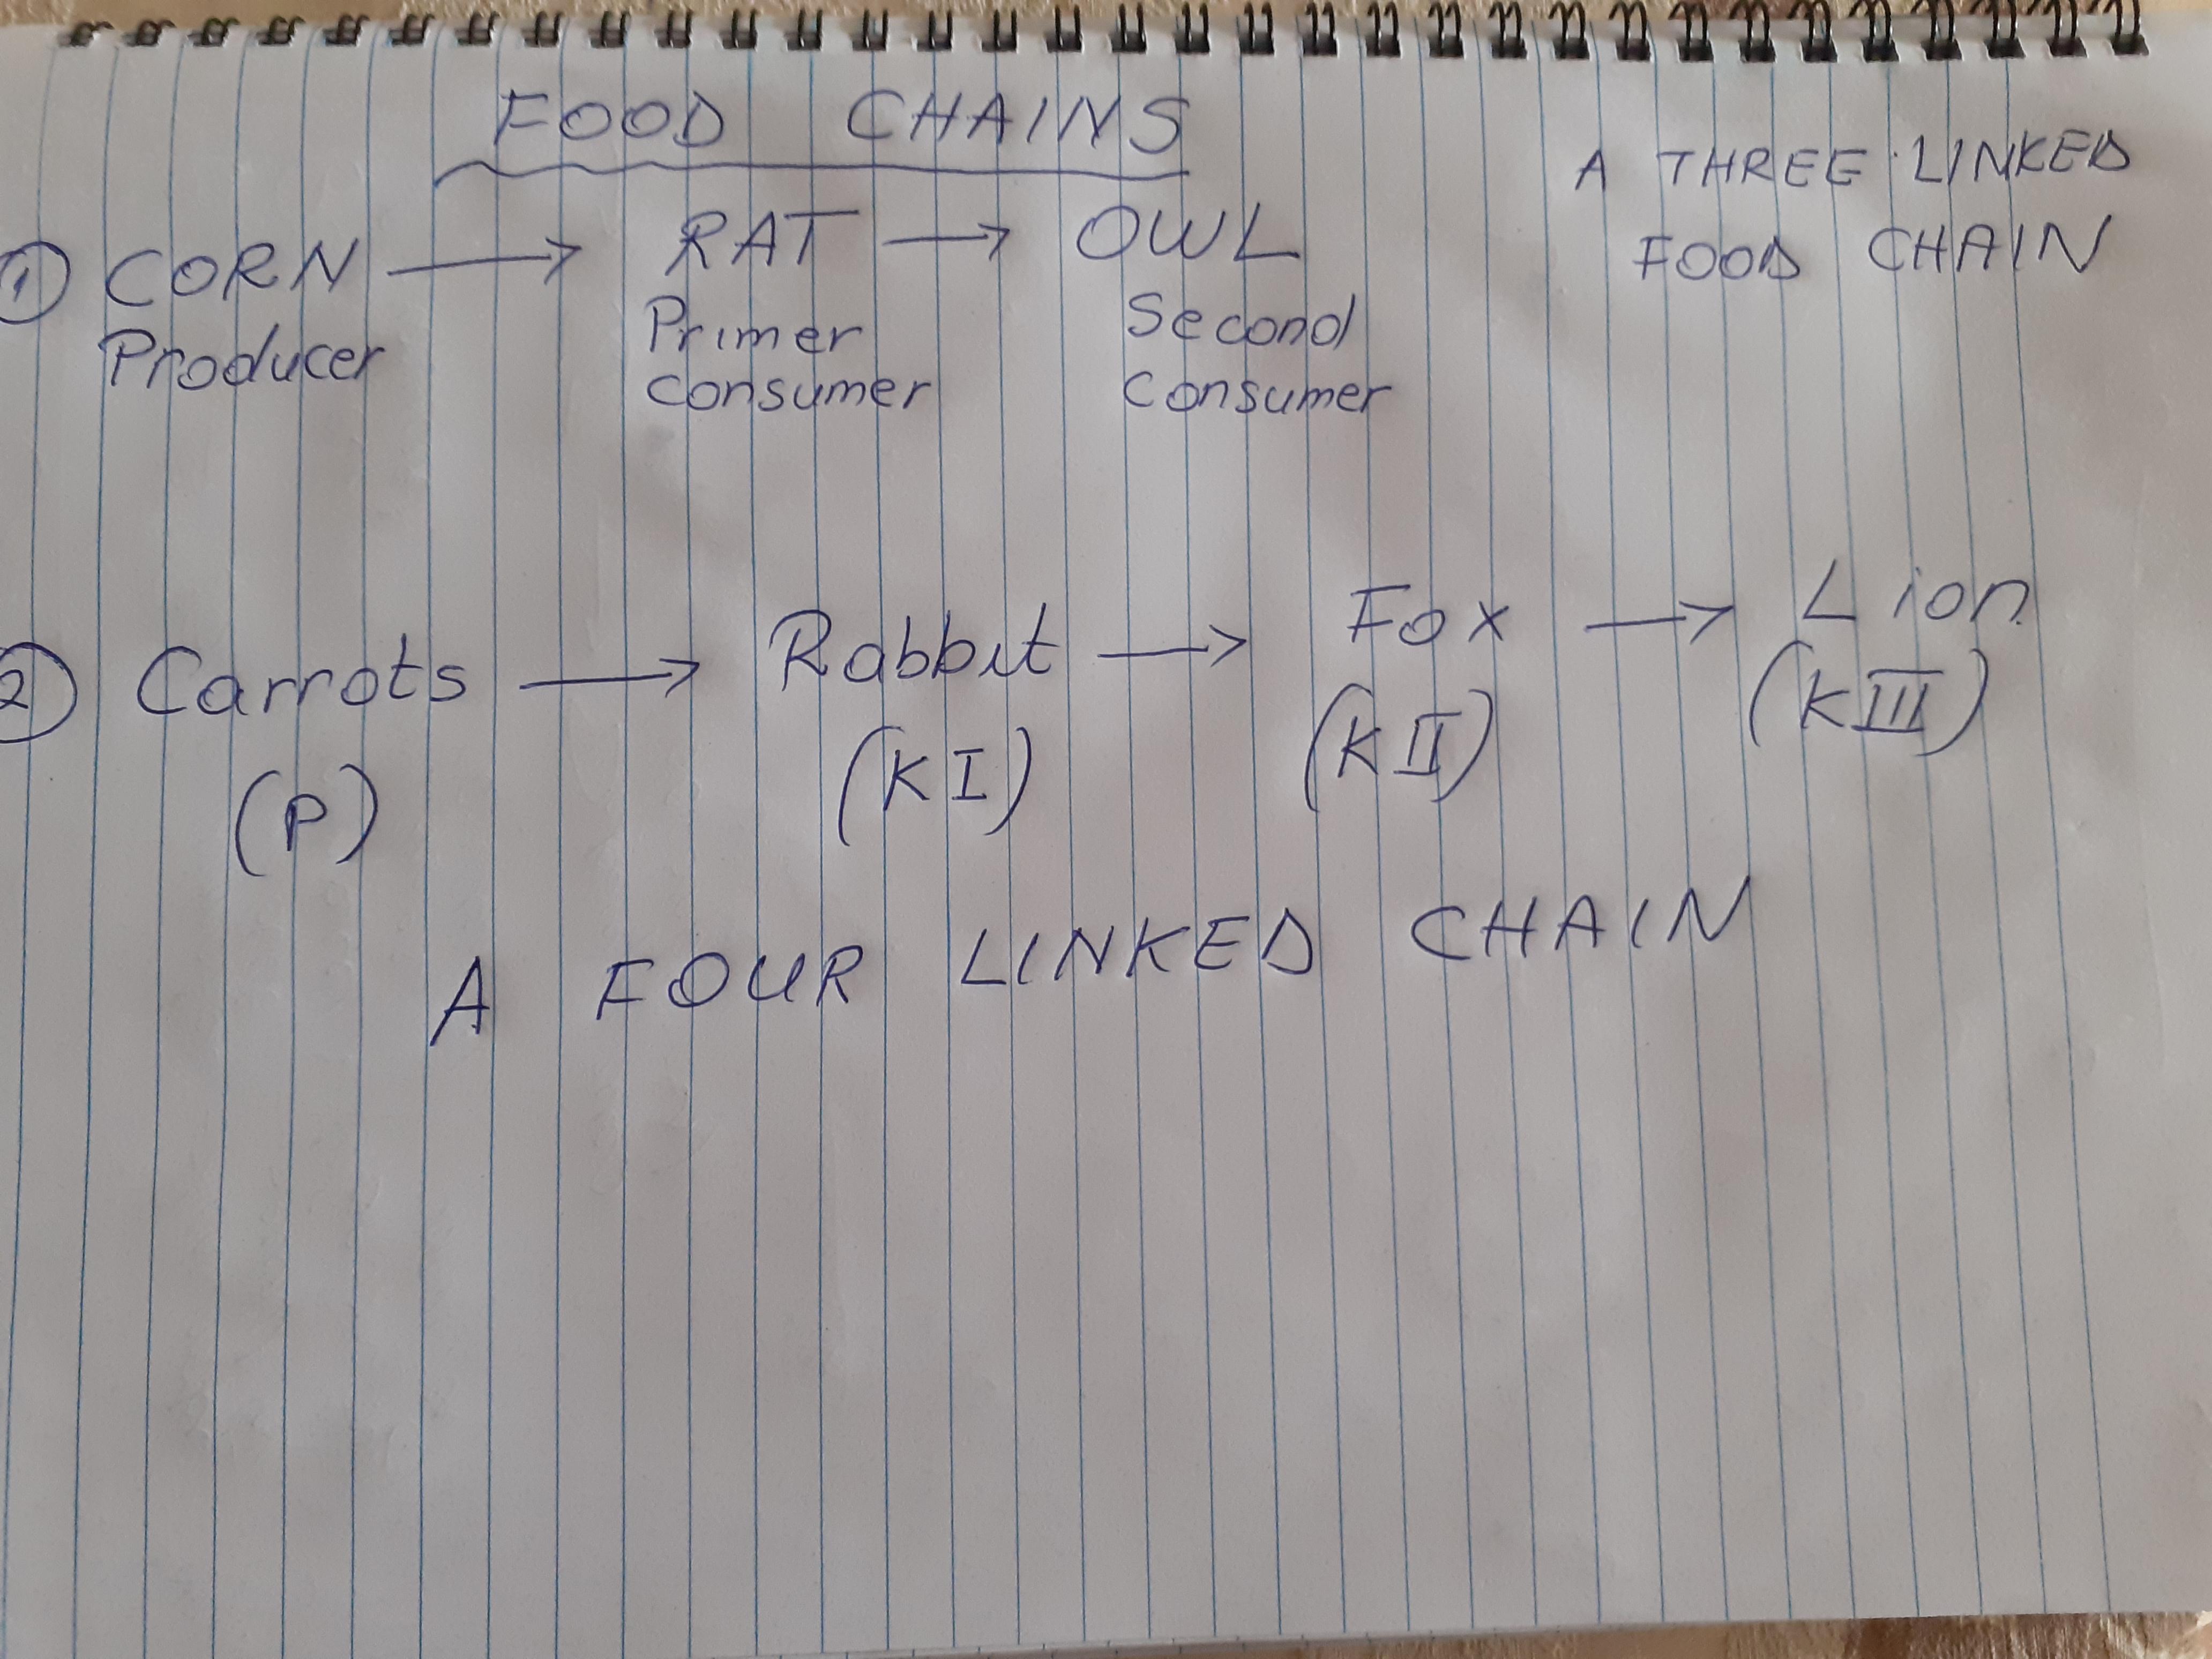 FOOD CHAINS
A THREE LINKED
FOOD CHAIN
① CORN → RAT → OWL
Producer Primer consumer Second Consumer
② Carrots → Rabbit → Fox → Lion
(P) (K I) (K II) (K III)
A FOUR LINKED CHAIN